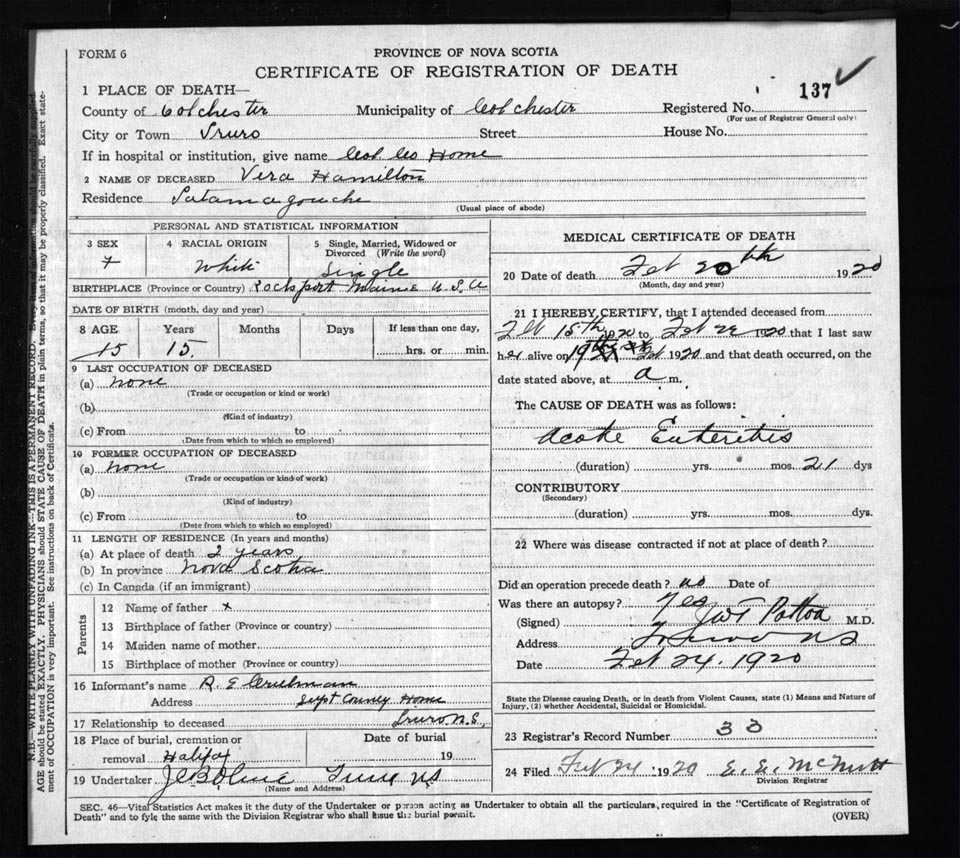 FORM 6
PROVINCE OF NOVA SCOTIA
CERTIFICATE OF REGISTRATION OF DEATH
137
1 PLACE OF DEATH—
County of Colchester Municipality of Colchester Registered No.
(For use of Registrar General only)
City or Town Truro Street House No.
If in hospital or institution, give name Col Co Home
2 NAME OF DECEASED Vera Hamilton
Residence Tatamagouche
(Usual place of abode)
PERSONAL AND STATISTICAL INFORMATION
3 SEX 4 RACIAL ORIGIN 5 Single, Married, Widowed or
Divorced (Write the word)
F White Single
BIRTHPLACE (Province or Country) Rocksport Maine U.S.A
DATE OF BIRTH (month, day and year)
8 AGE Years Months Days If less than one day,
15 15 hrs. or min.
9 LAST OCCUPATION OF DECEASED
(a) none
(Trade or occupation or kind or work)
(b)
(Kind of industry)
(c) From to
(Date from which to which so employed)
10 FORMER OCCUPATION OF DECEASED
(a) none
(Trade or occupation or kind of work)
(b)
(Kind of industry)
(c) From to
(Date from which to which so employed)
11 LENGTH OF RESIDENCE (In years and months)
(a) At place of death 2 years
(b) In province Nova Scotia
(c) In Canada (if an immigrant)
Parents
12 Name of father x
13 Birthplace of father (Province or country)
14 Maiden name of mother
15 Birthplace of mother (Province or country)
16 Informant's name R. E.
Address Supt County Home
17 Relationship to deceased Truro N.S.
18 Place of burial, cremation or Date of burial
removal Halifax 19
19 Undertaker
(Name and Address)
MEDICAL CERTIFICATE OF DEATH
20 Date of death Feb 20th 1920
(Month, day and year)
21 I HEREBY CERTIFY, that I attended deceased from
Feb 15th 1920 to Feb 1920 that I last saw
her alive on 19 Feb 1920 and that death occurred, on the
date stated above, at a m.
The CAUSE OF DEATH was as follows:
Acute Enteritis
(duration) yrs. mos. 21 dys
CONTRIBUTORY
(Secondary)
(duration) yrs. mos. dys.
22 Where was disease contracted if not at place of death?
Did an operation precede death? no Date of
Was there an autopsy? Yes
(Signed) Patton M.D.
Address Truro NS
Date Feb 24. 1920
State the Disease causing Death, or in death from Violent Causes, state (1) Means and Nature of
Injury, (2) whether Accidental, Suicidal or Homicidal.
23 Registrar's Record Number 33
24 Filed Feb 24 1920 E. E. McNutt
Division Registrar
SEC. 46—Vital Statistics Act makes it the duty of the Undertaker or person acting as Undertaker to obtain all the particulars, required in the "Certificate of Registration of
Death" and to fyle the same with the Division Registrar who shall issue the burial permit. (OVER)
N.B.—WRITE PLAINLY WITH UNFADING INK—THIS IS A PERMANENT RECORD. Every item of information should be carefully supplied.
AGE should be stated EXACTLY. PHYSICIANS should STATE CAUSE OF DEATH in plain terms, so that it may be properly classified. Exact state-
ment of OCCUPATION is very important. See instructions on back of Certificate.